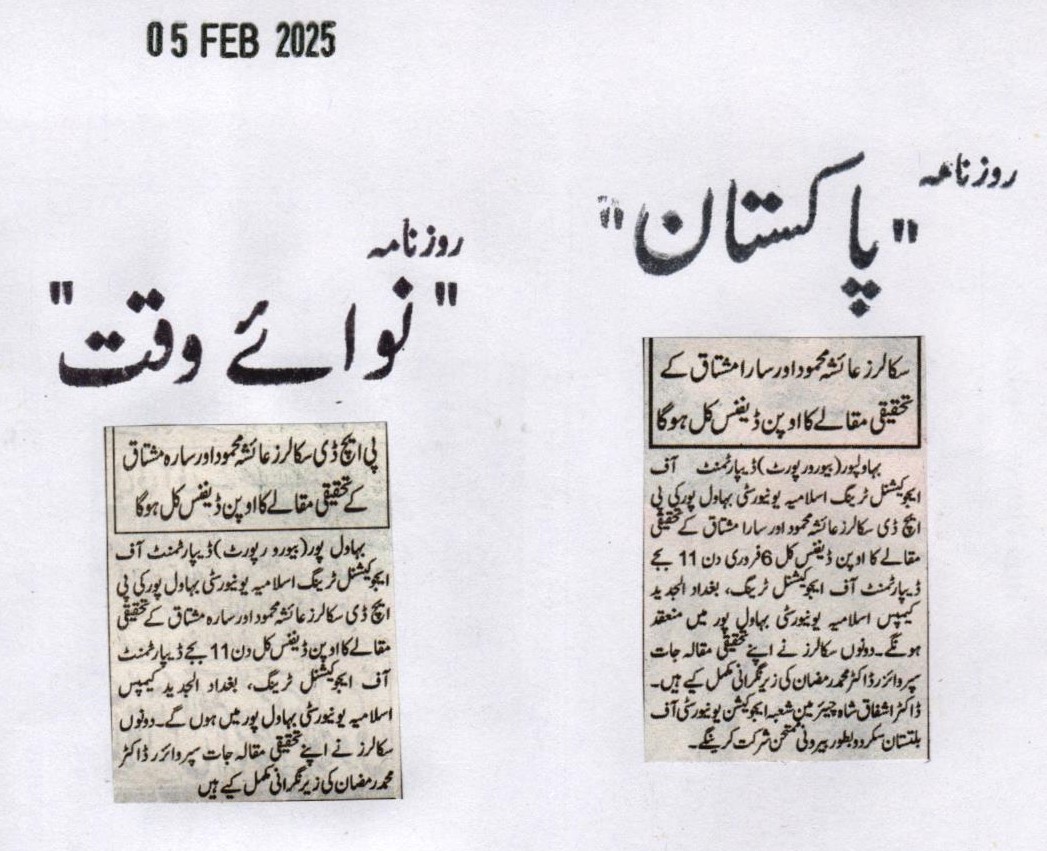 05 FEB 2025
روزنامہ
"پاکستان"
سکالرز عائشہ محمود اور سارا مشتاق کے
تحقیقی مقالے کا اوپن ڈیفنس کل ہوگا
بہاولپور(بیورورپورٹ)ڈیپارٹمنٹ آف
ایجوکیشنل ٹریننگ اسلامیہ یونیورسٹی بہاول پور کی پی
ایچ ڈی سکالرز عائشہ محمود اور سارا مشتاق کے تحقیقی
مقالے کا اوپن ڈیفنس کل 6فروری دن 11 بجے
ڈیپارٹمنٹ آف ایجوکیشنل ٹریننگ، بغداد الجدید
کیمپس اسلامیہ یونیورسٹی بہاول پور میں منعقد
ہونگے۔دونوں سکالرز نے اپنے تحقیقی مقالہ جات
سپروائزر ڈاکٹر محمد رمضان کی زیر نگرانی مکمل کیے ہیں۔
ڈاکٹر اشفاق شاہ چیئرمین شعبہ ایجوکیشن یونیورسٹی آف
بلتستان سکردو بطور بیرونی ممتحن شرکت کرینگے۔
روزنامہ
"نوائے وقت"
پی ایچ ڈی سکالرز عائشہ محمود اور سارہ مشتاق
کے تحقیقی مقالے کا اوپن ڈیفنس کل ہوگا
بہاول پور(بیورو رپورٹ)ڈیپارٹمنٹ آف
ایجوکیشنل ٹریننگ اسلامیہ یونیورسٹی بہاول پور کی پی
ایچ ڈی سکالرز عائشہ محمود اور سارہ مشتاق کے تحقیقی
مقالے کا اوپن ڈیفنس کل دن 11 بجے ڈیپارٹمنٹ
آف ایجوکیشنل ٹریننگ، بغداد الجدید کیمپس
اسلامیہ یونیورسٹی بہاول پور میں ہوں گے۔دونوں
سکالرز نے اپنے تحقیقی مقالہ جات سپروائزر ڈاکٹر
محمد رمضان کی زیر نگرانی مکمل کیے ہیں